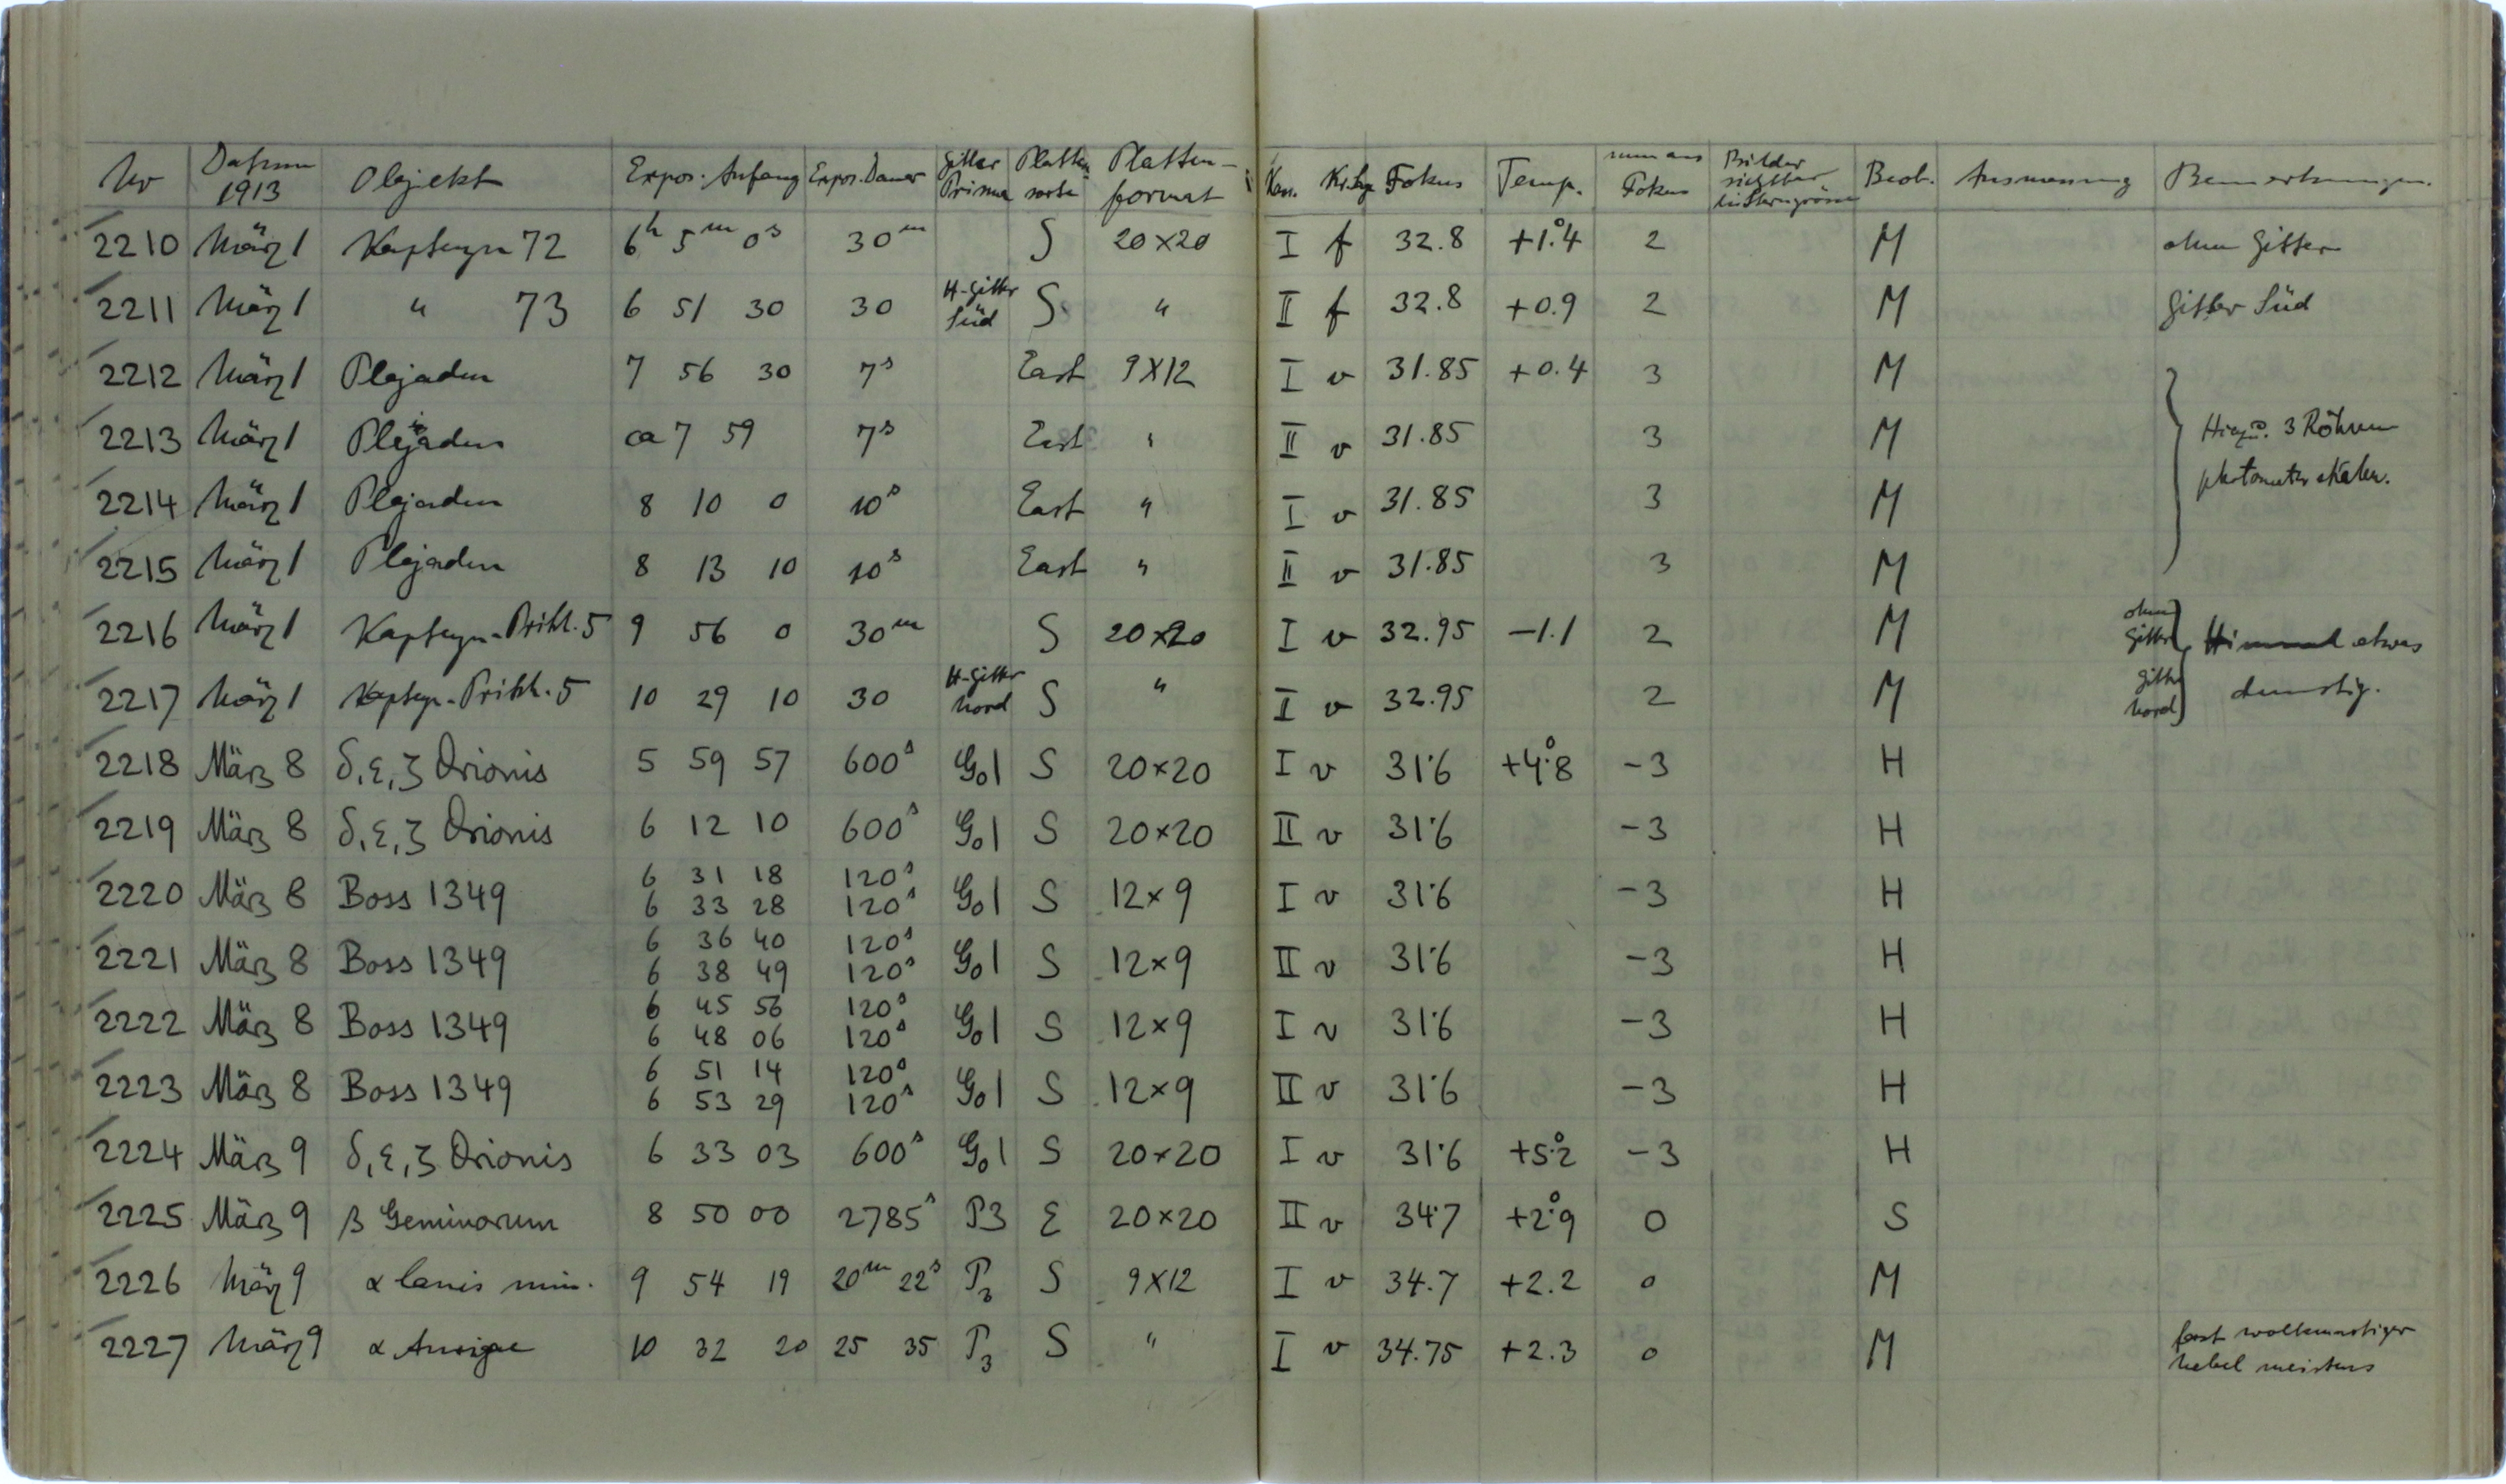 Nr Datum 1913 Objekt Expos. Anfang Expos. Dauer Gitter Prisma Platten sorte Platten-format Kass. Fokus Temp. mm aus Fokus Bilder sichtbar in Sterngrösse Beob. Ausmessung Bemerkungen.
2210 März 1 Kapteyn 72 6h 5m 0s 30m S 20×20 I f 32.8 +1°.4 2 M ohne Gitter
2211 März 1 " 73 6 51 30 30 H-Gitter Süd S " II f 32.8 +0.9 2 M Gitter Süd
2212 März 1 Plejaden 7 56 30 7s East 9×12 I v 31.85 +0.4 3 M
2213 März 1 Plejaden ca 7 59 7s East " II v 31.85 3 M Hiezu 3 Röhren
photometerskalen.
2214 März 1 Plejaden 8 10 0 10s East " I v 31.85 3 M
2215 März 1 Plejaden 8 13 10 10s East " II v 31.85 3 M
2216 März 1 Kapteyn-Pritch. 5 9 56 0 30m S 20×20 I v 32.95 -1.1 2 M ohne Gitter Himmel etwas
2217 März 1 Kapteyn-Pritch. 5 10 29 10 30 H-Gitter Nord S " I v 32.95 2 M Gitter Nord dunstig.
2218 März 8 δ, ε, ζ Orionis 5 59 57 600s G01 S 20×20 I v 31.6 +4°.8 -3 H
2219 März 8 δ, ε, ζ Orionis 6 12 10 600s G01 S 20×20 II v 31.6 -3 H
2220 März 8 Boss 1349 6 31 18 120s G01 S 12×9 I v 31.6 -3 H
6 33 28 120s
2221 März 8 Boss 1349 6 36 40 120s G01 S 12×9 II v 31.6 -3 H
6 38 49 120s
2222 März 8 Boss 1349 6 45 56 120s G01 S 12×9 I v 31.6 -3 H
6 48 06 120s
2223 März 8 Boss 1349 6 51 14 120s G01 S 12×9 II v 31.6 -3 H
6 53 29 120s
2224 März 9 δ, ε, ζ Orionis 6 33 03 600s G01 S 20×20 I v 31.6 +5°.2 -3 H
2225 März 9 β Geminorum 8 50 00 2785s P3 E 20×20 II v 34.7 +2°.9 0 S
2226 März 9 α Canis min. 9 54 19 20m 22s P3 S 9×12 I v 34.7 +2.2 0 M
2227 März 9 α Aurigae 10 32 20 25 35 P3 S " I v 34.75 +2.3 0 M fast wolkenartiger
Nebel meistens